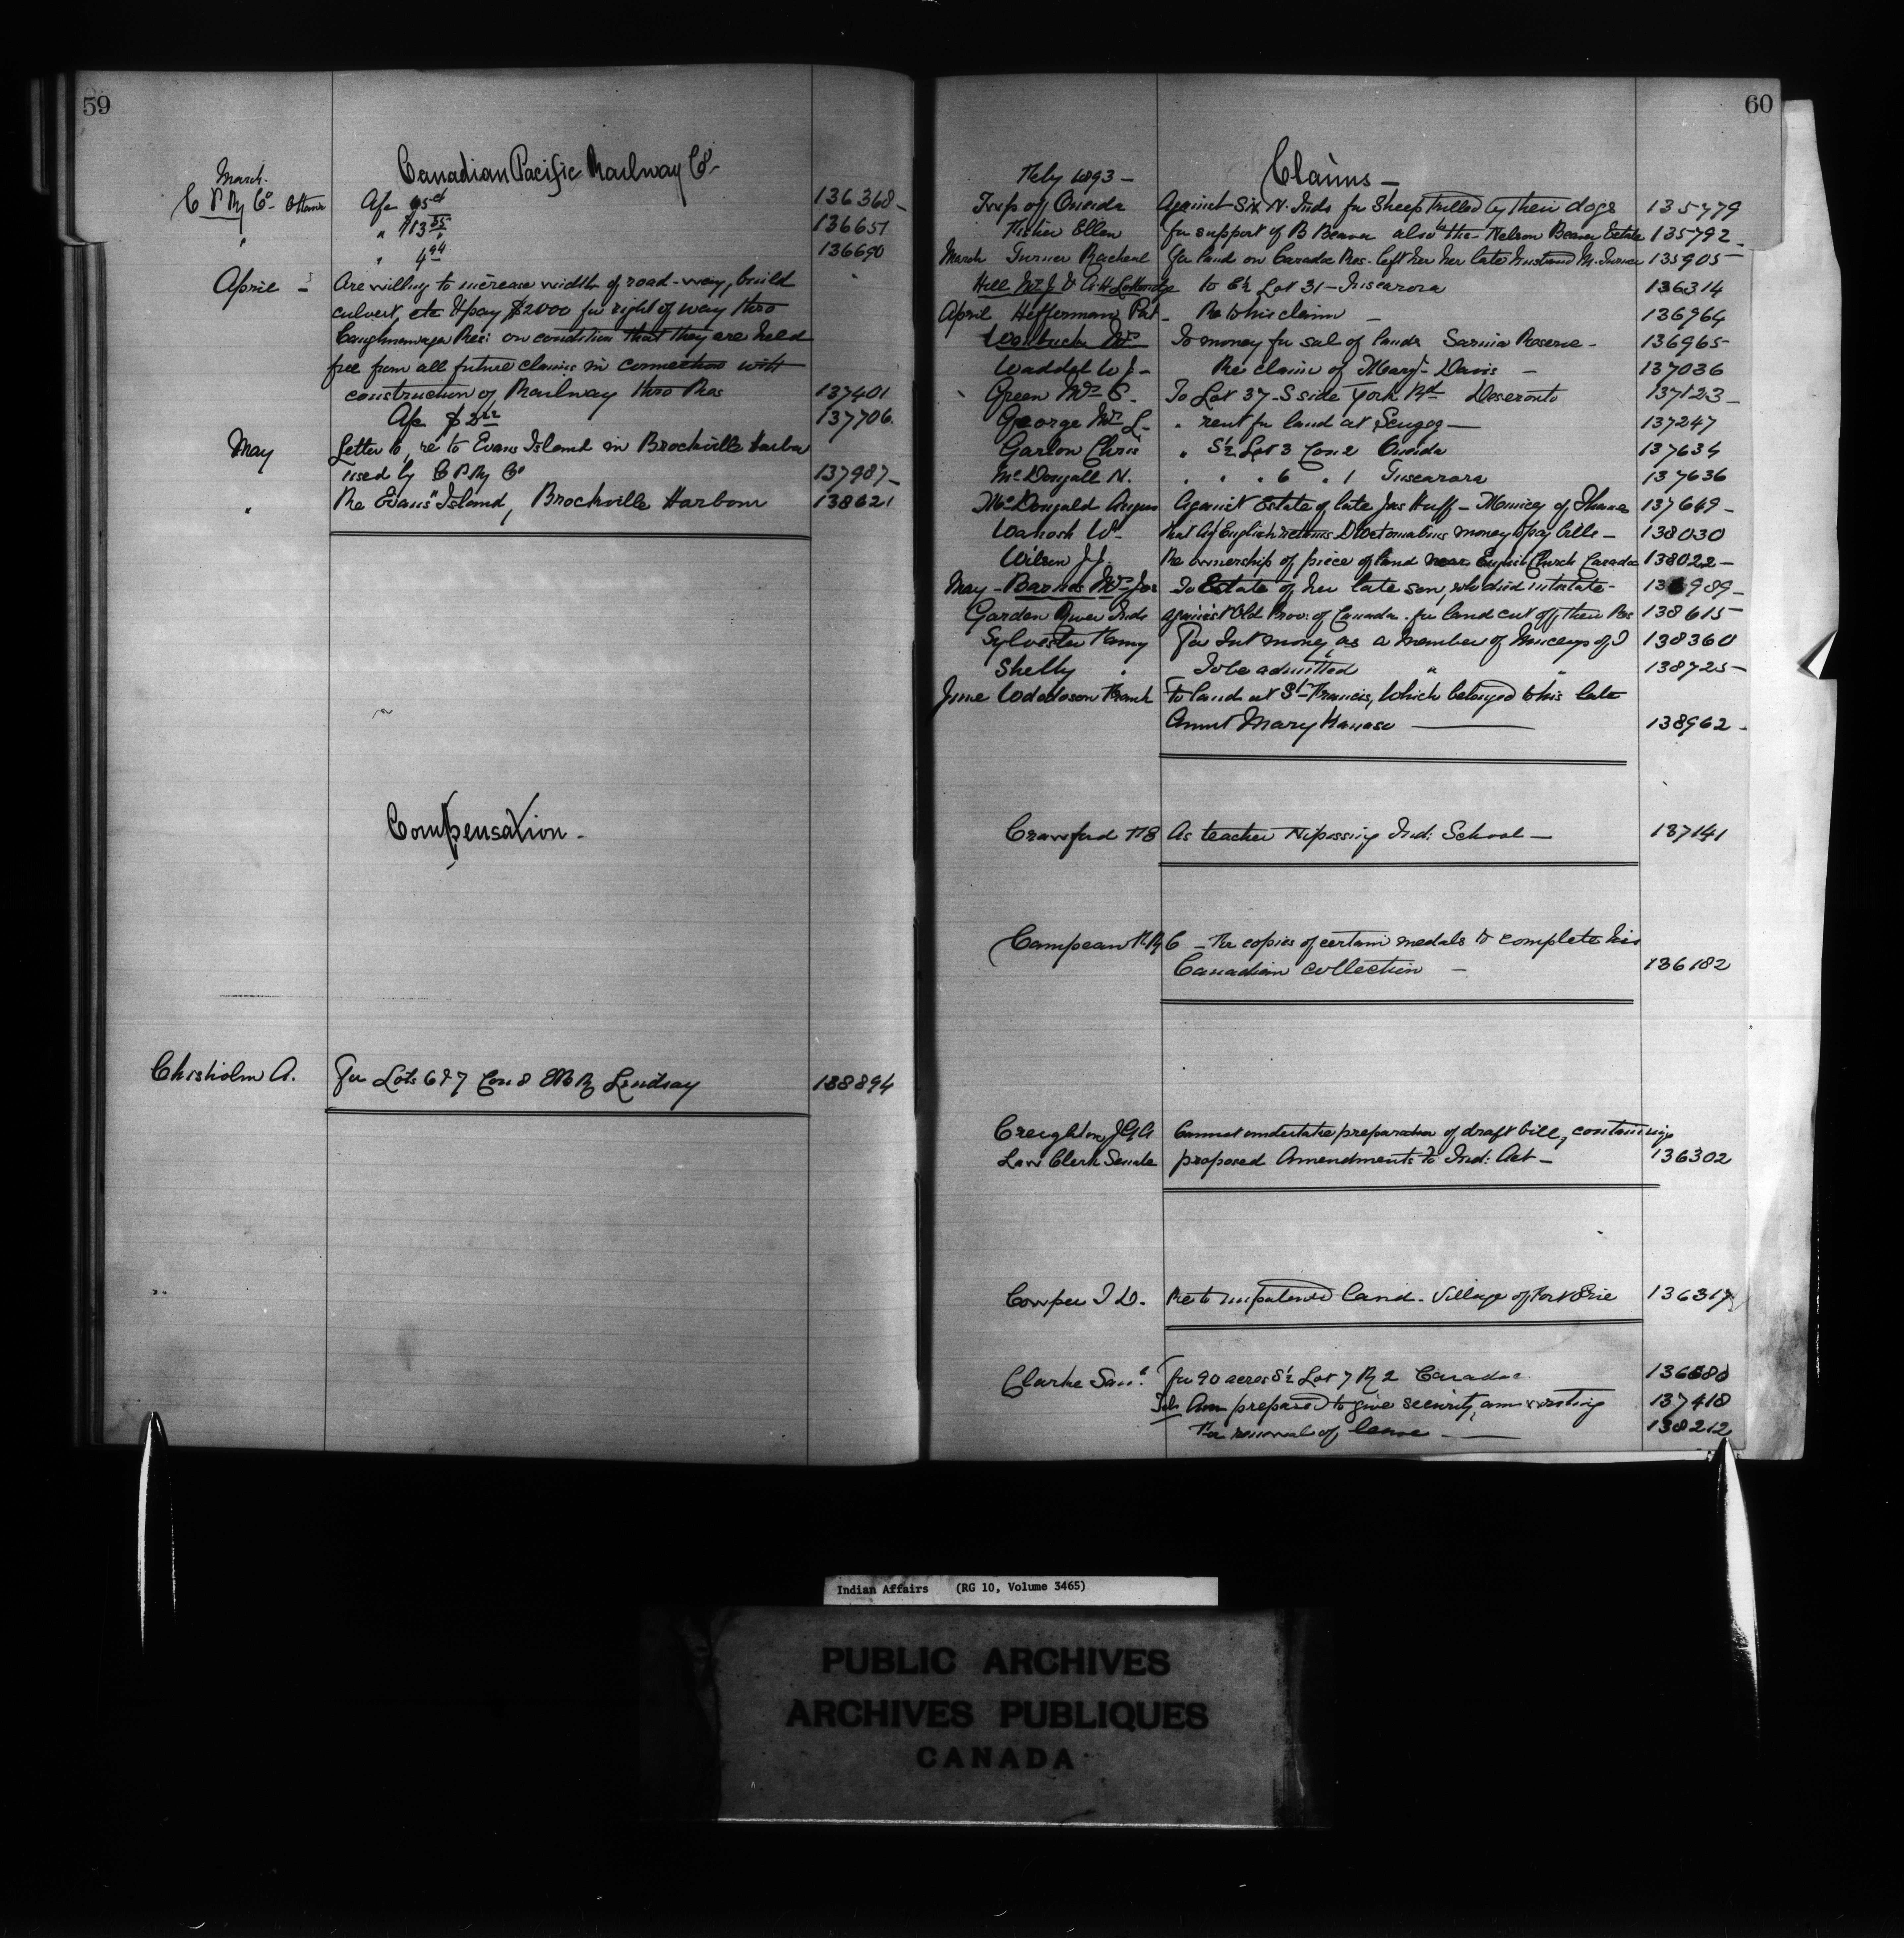 59
Canadian Pacific Railway Co
March
C P Ry Co Ottawa
136368
136651
136690
April
Are willing to increase width of road-way, build
culvert, etc & pay $2000 for right of way thro
Caughnawaga Res: on condition that they are held
free from all future claims in connection with
construction of Railway thro Res 137401
137706
May Letter to, re to Evans Island in Brockville Harbor
used by C P Ry Co 137987
" Re Evans Island, Brockville Harbour 138621
Compensation
Chisholm A. For Lots 6 & 7 Con 8 Lindsay 138894
60
Feby 1893 Claims
Twp of Oneida Against Six N. Inds for Sheep killed by their dogs 135779
Fisher Ellen for support of B Beaver also the Nelson Beaver Estate 135792
March Turner Racheal for land on Caradoc Res. left her her late husband M. Turner 135905
to E½ Lot 31 - Tuscarora 136314
April Hefferman Pat Re to his claim 136964
To money for sale of lands Sarnia Reserve 136965
Waddel W J Re claim of Mary Davis 137036
Green Mrs C. To Lot 37 S side York Rd Deseronto 137123
George Mrs L. " rent for land at Scugog 137247
Garlow Chris " S½ Lot 3 Con 2 Oneida 137634
McDougall N. " " " 6 " 1 Tuscarora 137636
McDougald Angus Against Estate of late Jas Huff - Muncey of Thames 137649
Wawosh W. that Ag English money to pay bills 138030
Wilson J J. Re ownership of piece of land near English Church Caradoc 138022
May - Barnes Mrs Jas To Estate of her late son, who died intestate 989
Garden River Inds against Old Prov: of Canada for land cut off their Res 138615
Sylvester Fanny For Int money as a member of Munceys of T 138360
Shelly " To be admitted " " 138725
June Frank To land at St Francis, which belonged to his late
Aunt Mary 138962
Crawford As teacher Nipissing Ind: School 137141
Campeau For copies of certain medals to complete his
Canadian collection 136182
Creighton J G A Cannot undertake preparation of draft bill, containing
Law Clerk Senate proposed Amendments to Ind: Act 136302
Cowper Re to unpatented land - Village of Fort Erie 13631
Clarke Saml for 90 acres S½ Lot 7 R 2 Caradoc
Am prepared to give security, am writing 137418
For renewal of lease 138212
Indian Affairs (RG 10, Volume 3465)
PUBLIC ARCHIVES
ARCHIVES PUBLIQUES
CANADA